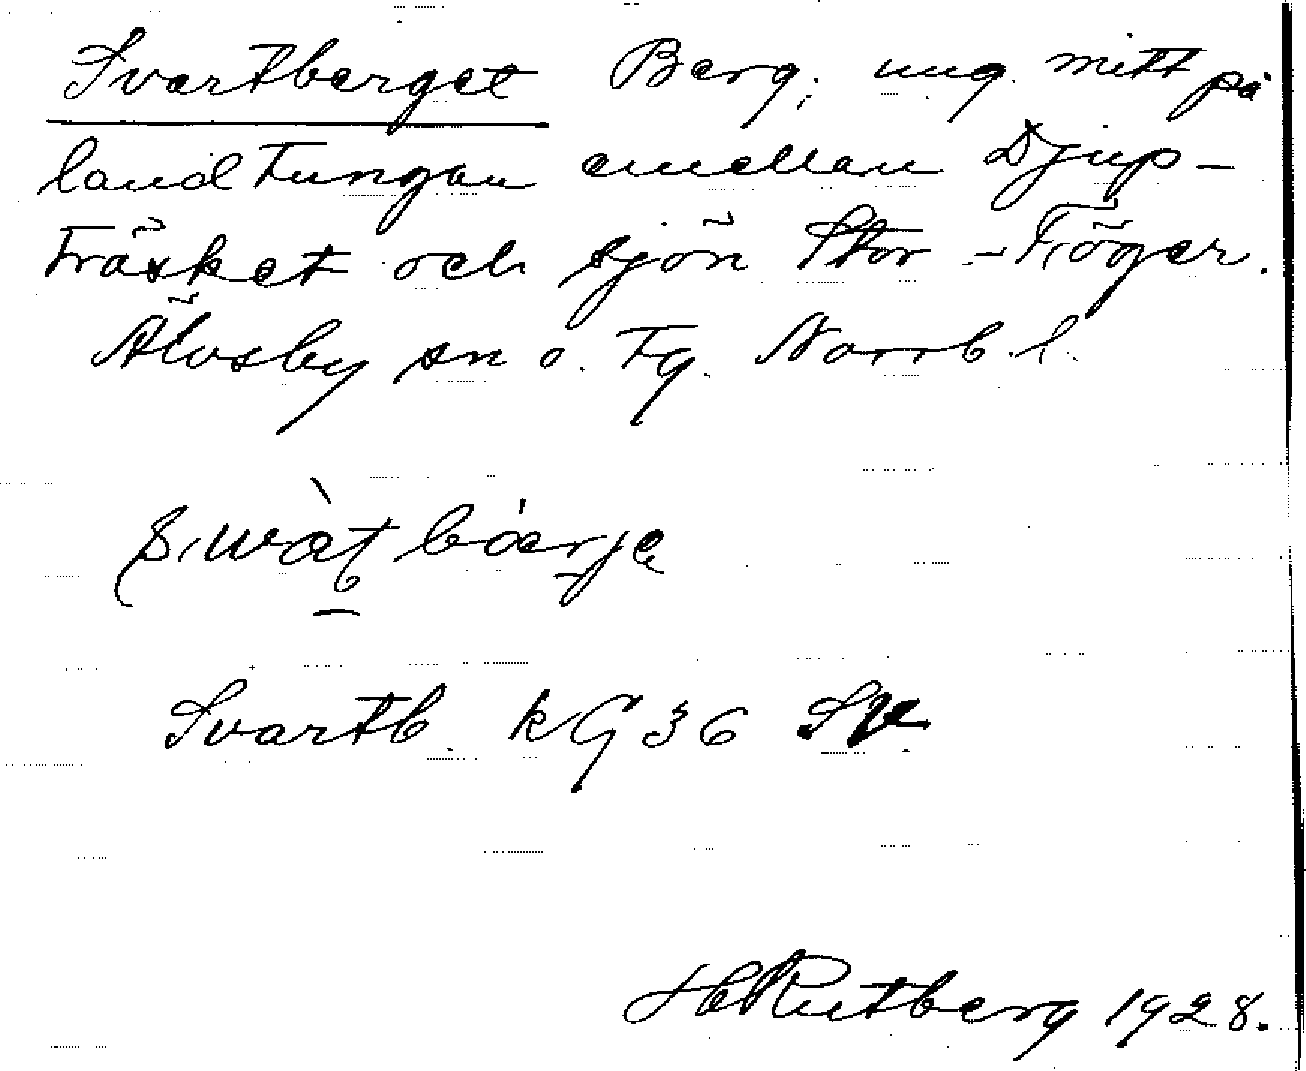 Svartberget Berg, ung. mitt på
landtungan emellan Djup-
träsket och sjön Stor-Töger.
Älvsby sn o. tg. Norrb. l.
Svartb. kG 36
H Rutberg 1928.